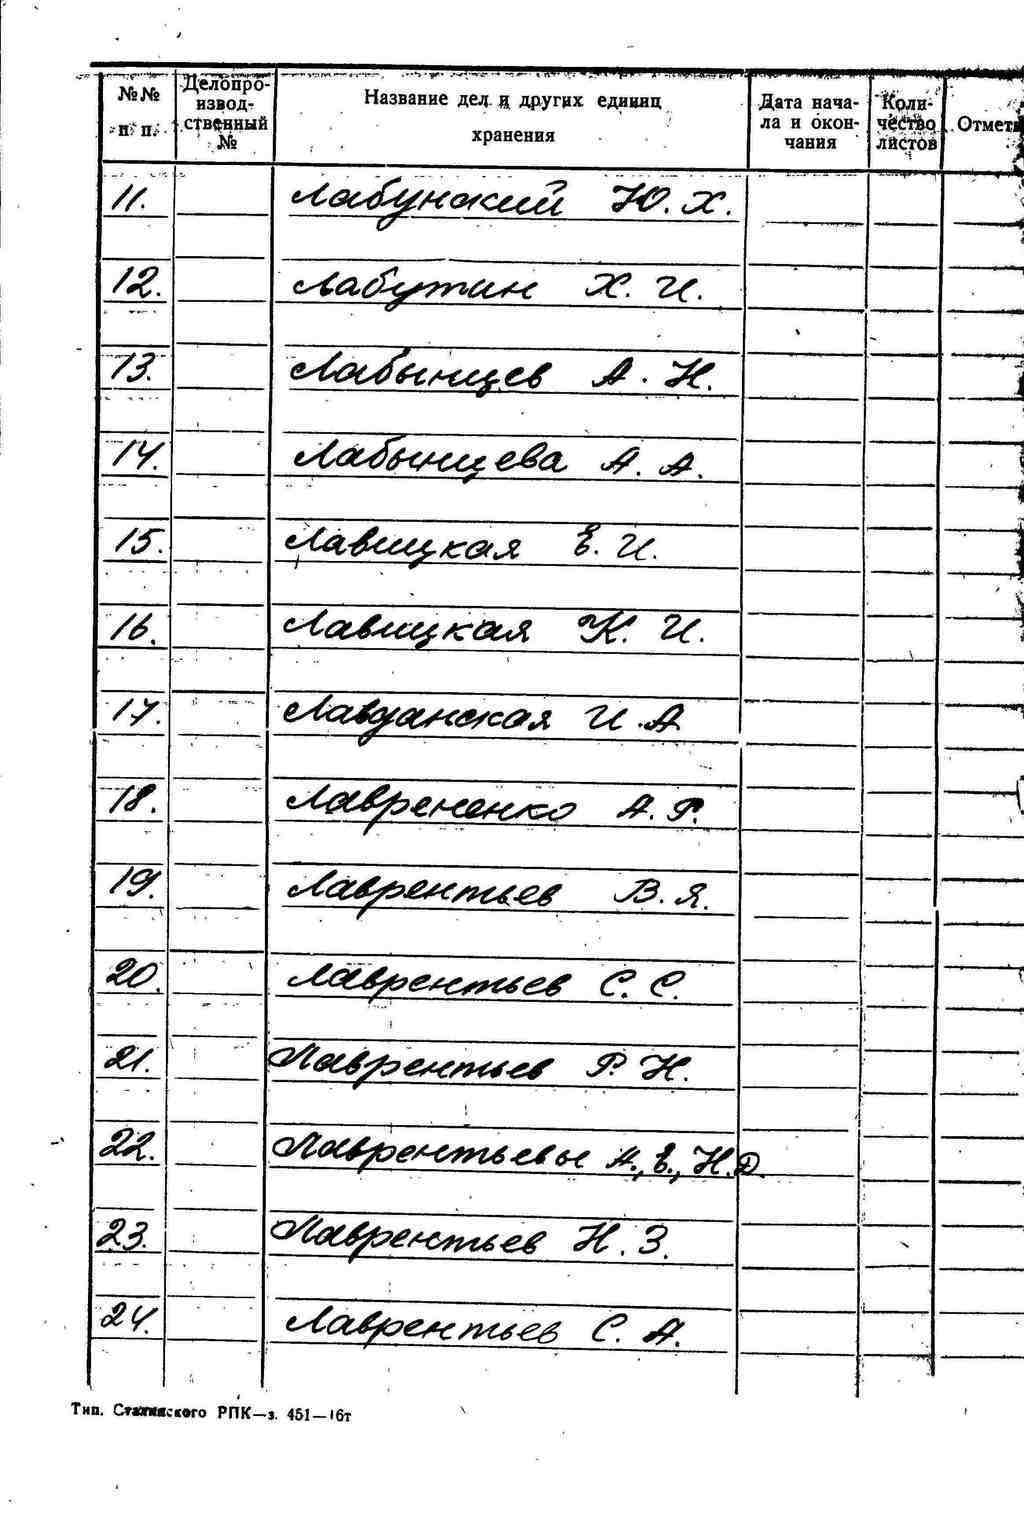 №№ п. п. Делопро-извод-ственный № Название дел и других единиц хранения Дата нача-ла и окон-чания Коли-чество листов Отмет
11. Лабунский Ю. Х.
12. Лабутин Х. И.
13. Лабынцев А. Н.
14. Лабынцева А. А.
15. Лавицкая Е. И.
16. Лавицкая К. И.
17. Лавданская И. А
18. Лаврененко А. Г.
19. Лаврентьев В. Я.
20. Лаврентьев С. С.
21. Лаврентьев Р. Н.
22. Лаврентьевы А., Е., Н. Д.
23. Лаврентьев Н. З.
24. Лаврентьев С. А.
Тип. Сталинского РПК—з. 451—16т